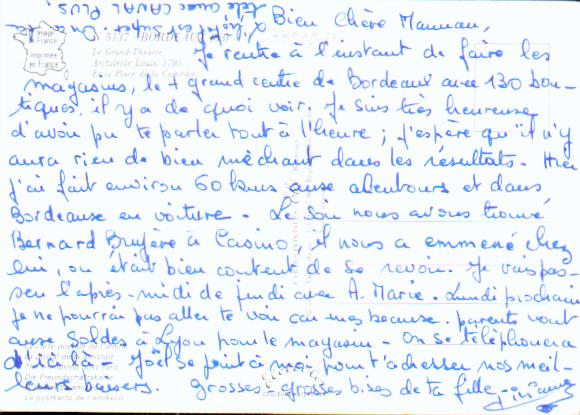 Image
de France
Imprimée
en France
N 5137 BORDEAUX
Le Grand-Théâtre
Architecte Louis, 1780
Et la Place de la Comédie
télé avec CANAL PLUS.
l'hôtel est super. On a la
Bien Chère Maman,
Je rentre à l'instant de faire les
magasins, le + grand centre de Bordeaux avec 130 bou-
tiques, il y a de quoi voir. Je suis très heureuse
d'avoir pu te parler tout à l'heure ; j'espère qu'il n'y
aura rien de bien méchant dans les résultats. Hier
j'ai fait environ 60 kms aux alentours et dans
Bordeaux en voiture. Le soir nous avons trouvé
Bernard Bruyère à Casino, il nous a emmené chez
lui, on était bien content de se revoir. Je vais pas-
ser l'après-midi de jeudi avec A. Marie. Lundi prochain
je ne pourrai pas aller te voir car mes beaux-parents vont
aux soldes à Lyon pour le magasin. On se téléphonera
d'ici là. Joël se joint à moi pour t'adresser nos meil-
leurs baisers. Grosses grosses bises de ta fille
Die Freundschaftskarte
La postkarto de l'amikeco